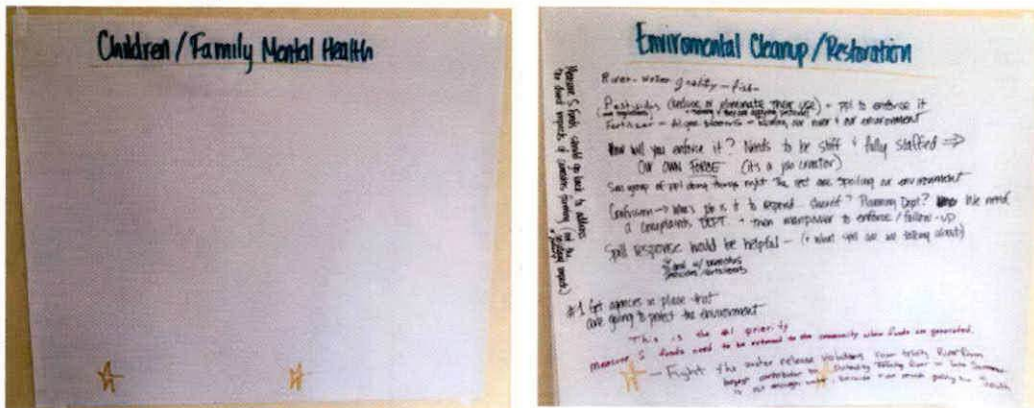 Children/Family Mental Health
Enviromental Cleanup/Restoration
River-water quality - fish
Pesticides (reduce or eliminate their use) + ppl to enforce it
Fertilizer - Algae blooms - our river + our environment
How will you enforce it? Needs to be stiff + fully staffed ⇒
Our own FORCE (it's a job creator)
group of ppl doing things right The rest are spoiling our environment
Confusion → Who's job is it to respond - Sheriff? Planning Dept? We need
a complaints DEPT. + then manpower to enforce/follow-up
Spill response would be helpful - (+ what spill are we talking about)
#1 Get agencies in place that
are going to protect the environment
This is the #1 priority
measure S funds need to be returned to the community when funds are generated.
- Fight the water release violations from Trinity River
largest contributor to River in late Summer
is not enough because much going
Measure S funds should go back to address
the direct impacts of cannabis (not the